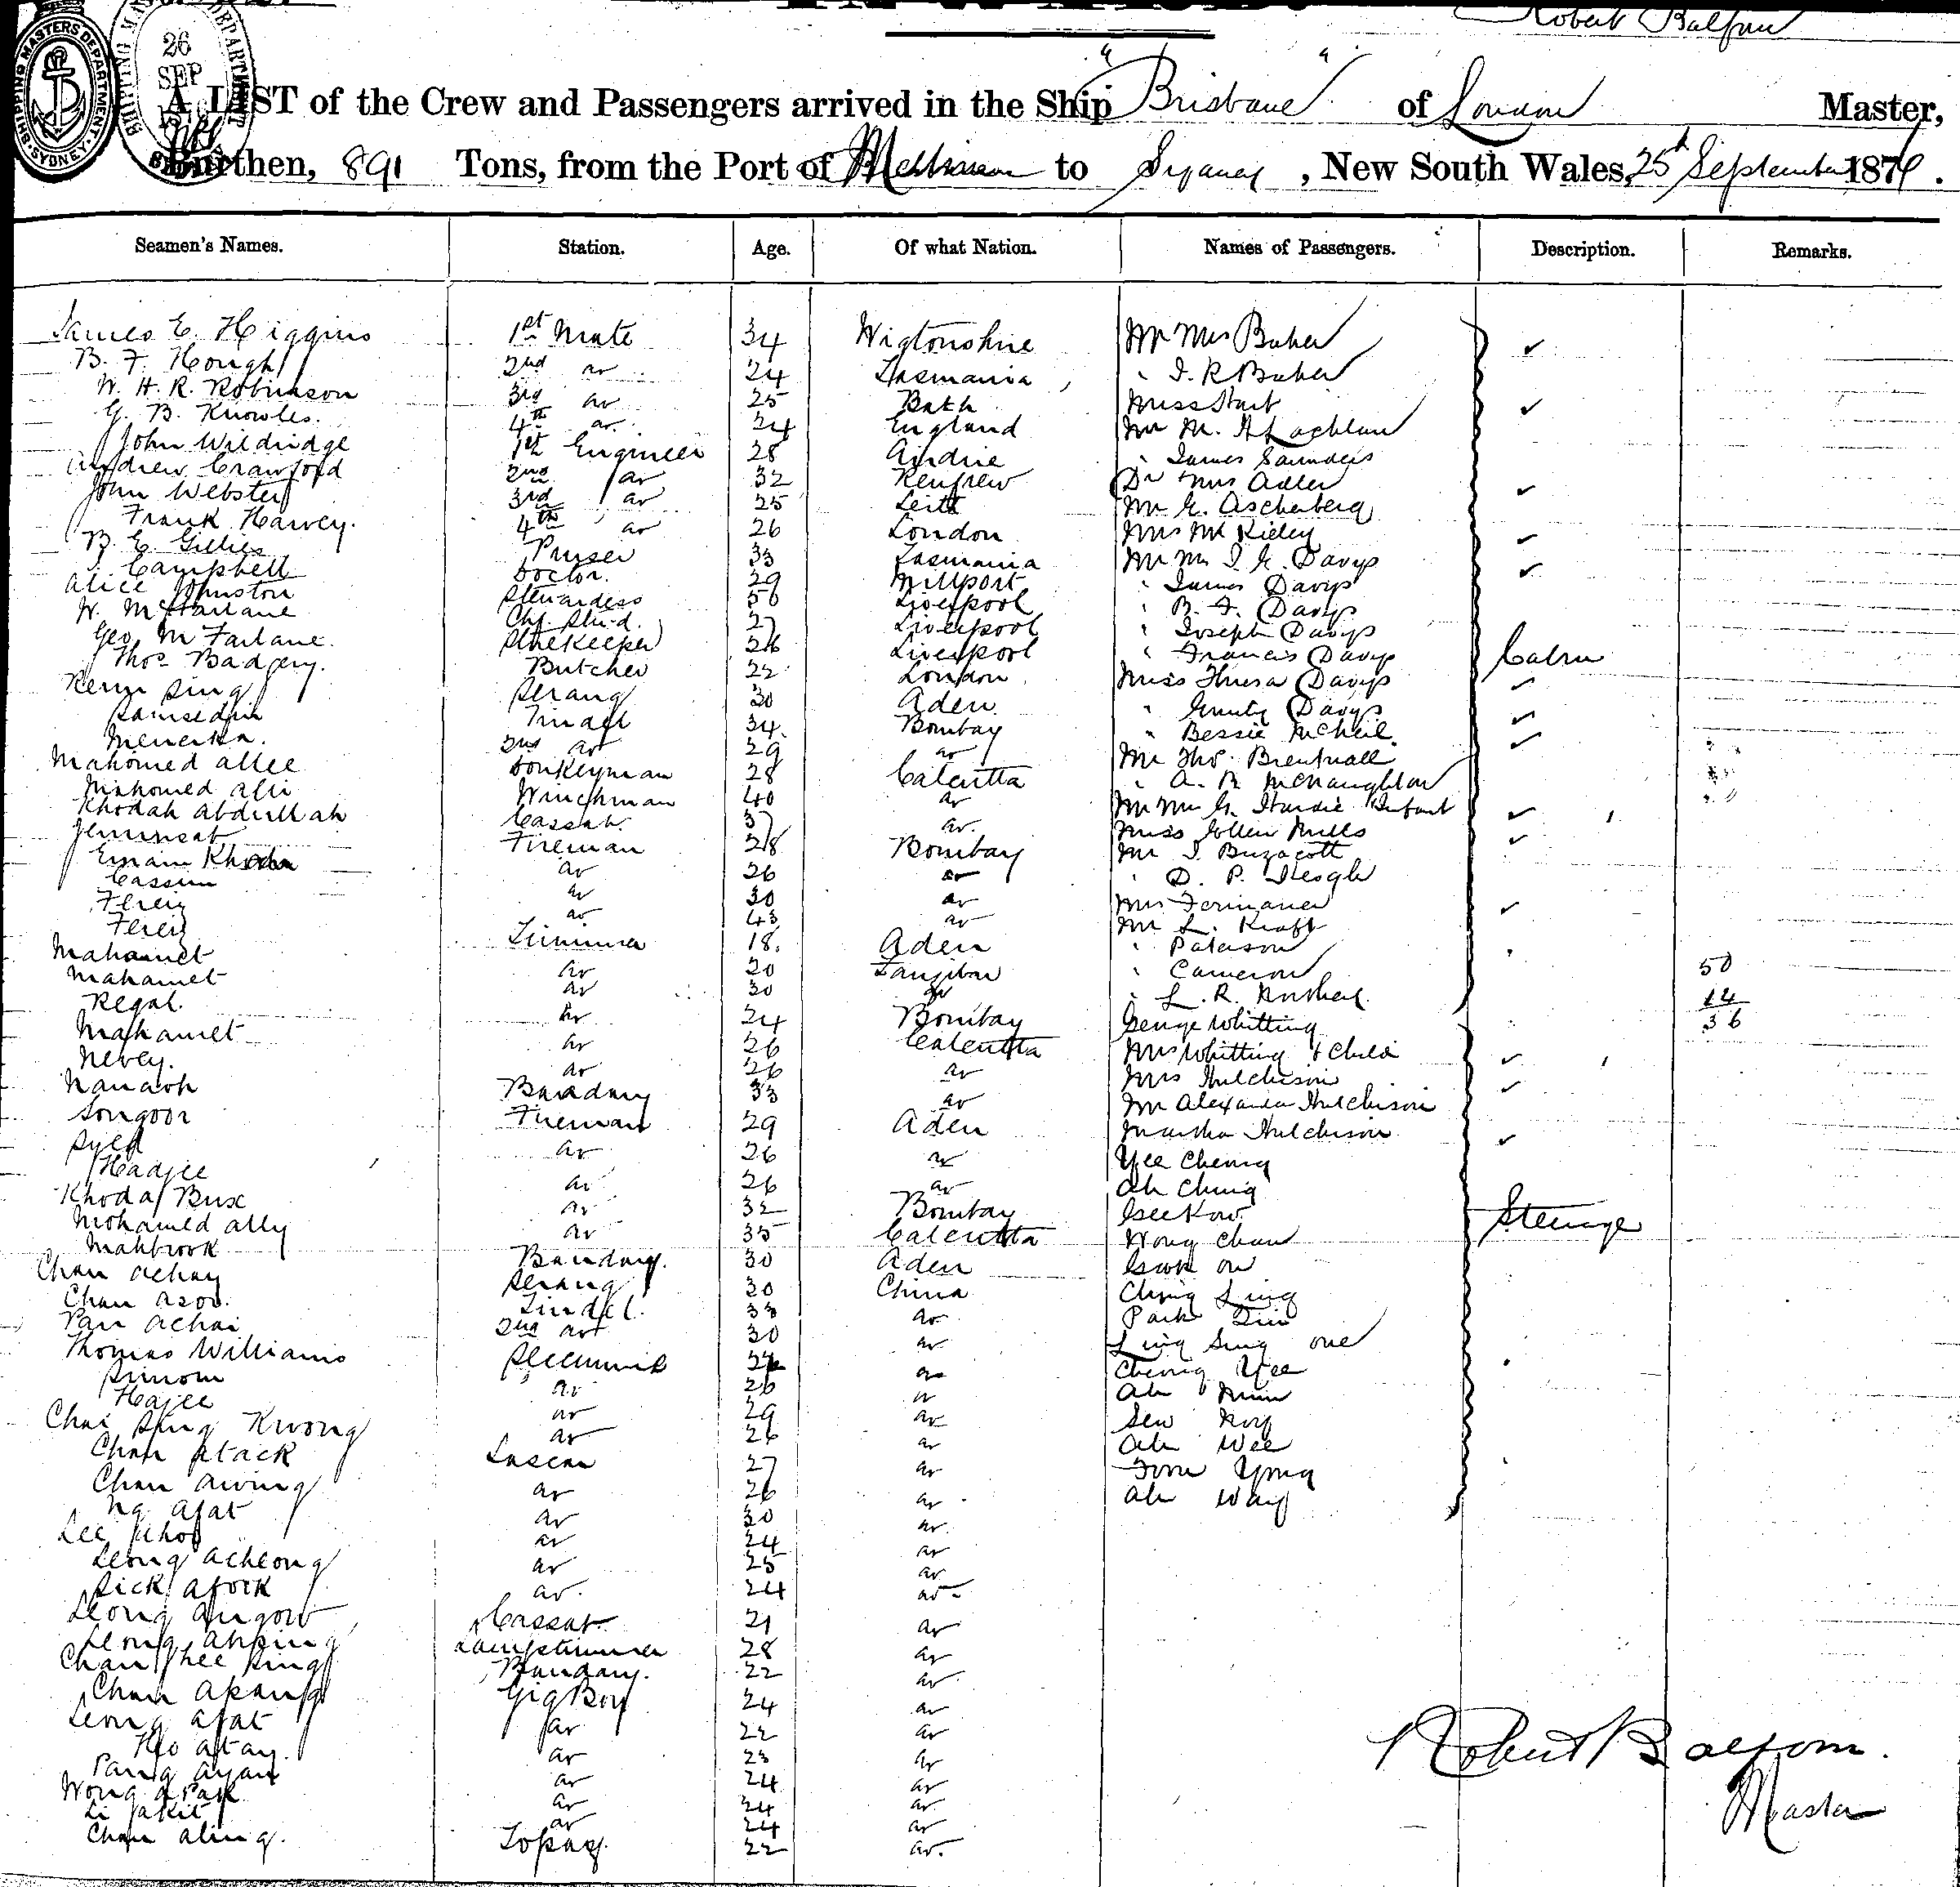 Robert Balfour
SHIPPING MASTERS DEPARTMENT SYDNEY
26 SEP
A LIST of the Crew and Passengers arrived in the Ship "Brisbane" of London Master,
Burthen, 891 Tons, from the Port of Melbourne to Sydney, New South Wales, 25th September 1876.
Seamen's Names. Station. Age. Of what Nation. Names of Passengers. Description. Remarks.
James E. Higgins 1st Mate 34 Wigtonshire Mr Mrs Baker
B. F. Hough 2nd do 24 Tasmania " I. R Baker
W. H. R. Robinson 3rd do 25 Bath Miss Start
G. B. Knowles 4th do 24 England Mr M. H Lachlan
John Wildridge 1st Engineer 28 Airdrie " James Saunders
Andrew Crawford 2nd do 32 Renfrew Dr Mrs Adler
John Webster 3rd do 25 Leith Mr G. Ascherberg
Frank Harvey. 4th do 26 London Mrs Mc Kieley
B. E. Gillies Purser 33 Tasmania Mr Mrs I. G. Davys
Campbell Doctor. 29 Millport " James Davys
Alice Johnston Stewardess 50 Liverpool " B. F. Davys
W. McFarlane Chf. Stwd. 27 Liverpool " Joseph Davys
Geo McFarlane. Storekeeper 26 Liverpool " Francis Davys Cabin
Thos Badgery. Butcher 22 London Miss Theresa Davys
Kerin Sing Serang 30 Aden " Davys
Samsedin Tindal 34 Bombay " Bessie McNeil
Menerka. 2nd do 29 do Mr Thos Brentnall
Mahomed allee Donkeyman 28 Calcutta " A. R. McNaughton
Mahomed ali Winchman 40 do Mr Mrs G. Hardie Infant
Khodah Abdullah Cassab. 37 do. Miss Ellen Mills
Jemmsat Fireman 28 Bombay Mr I. Buzacott
Emam Khoda do 26 do " D. P. Keogh
Cassim do 30 do Mrs
Ferej do 43 do Mr L. Kraft
Ferej Trimmer 18. Aden " Paterson
Mahamet do 20 Zanzibar " Cameron 50
Mahamet do 30 do " L. R. 14
Regal. do 24 Bombay George Whitting 36
Mahamet do 26 Calcutta Mrs Whitting & Child
Nevey. do 26 do Mrs Hutchison
Nanach Bandary 33 do Mr Alexander Hutchison
Songoor Fireman 29 Aden Martha Hutchison
Syed do 26 do Yee Cheong
Hadjee do 26 do Ah Ching
Khoda Bux do 32 Bombay Gee Kow Steerage
Mohamed ally do 35 Calcutta Wong Chan
Mahbrook Bandary. 30 Aden Gook on
Chan Achay Serang 30 China Ching Ling
Chan Asoo. Tindal. 38 do Park
Pan Achai 2nd do 30 do Ling Sing one
Thomas Williams do Cheong Yee
Simon do 26 do Ah
Hajee do 29 do Sew
Chai Sing Kwong do 26 do Ah Wee
Chan Atack Lascar 27 do Yong
Chan Awing do 26 do Ah Way
Ng Afat do 30 do
Lee do 24 do
Leong Acheong do 25 do
Sick Afook do. 24 do
Leong Angow Cassab 21 do
Leong Ahping Lamptrimmer 28 do
Chan hee Sing Bandary. 22 do
Chan Akang Gig Boy 24 do
Leong Afat do 22 do
Ho Atay. do 23 do
Pang Ayan do 24 do
Wong Apak do 24 do
Li Jakit do 24 do
Chan Aling. Topaz. 22 do.
Robert Balfour.
Master